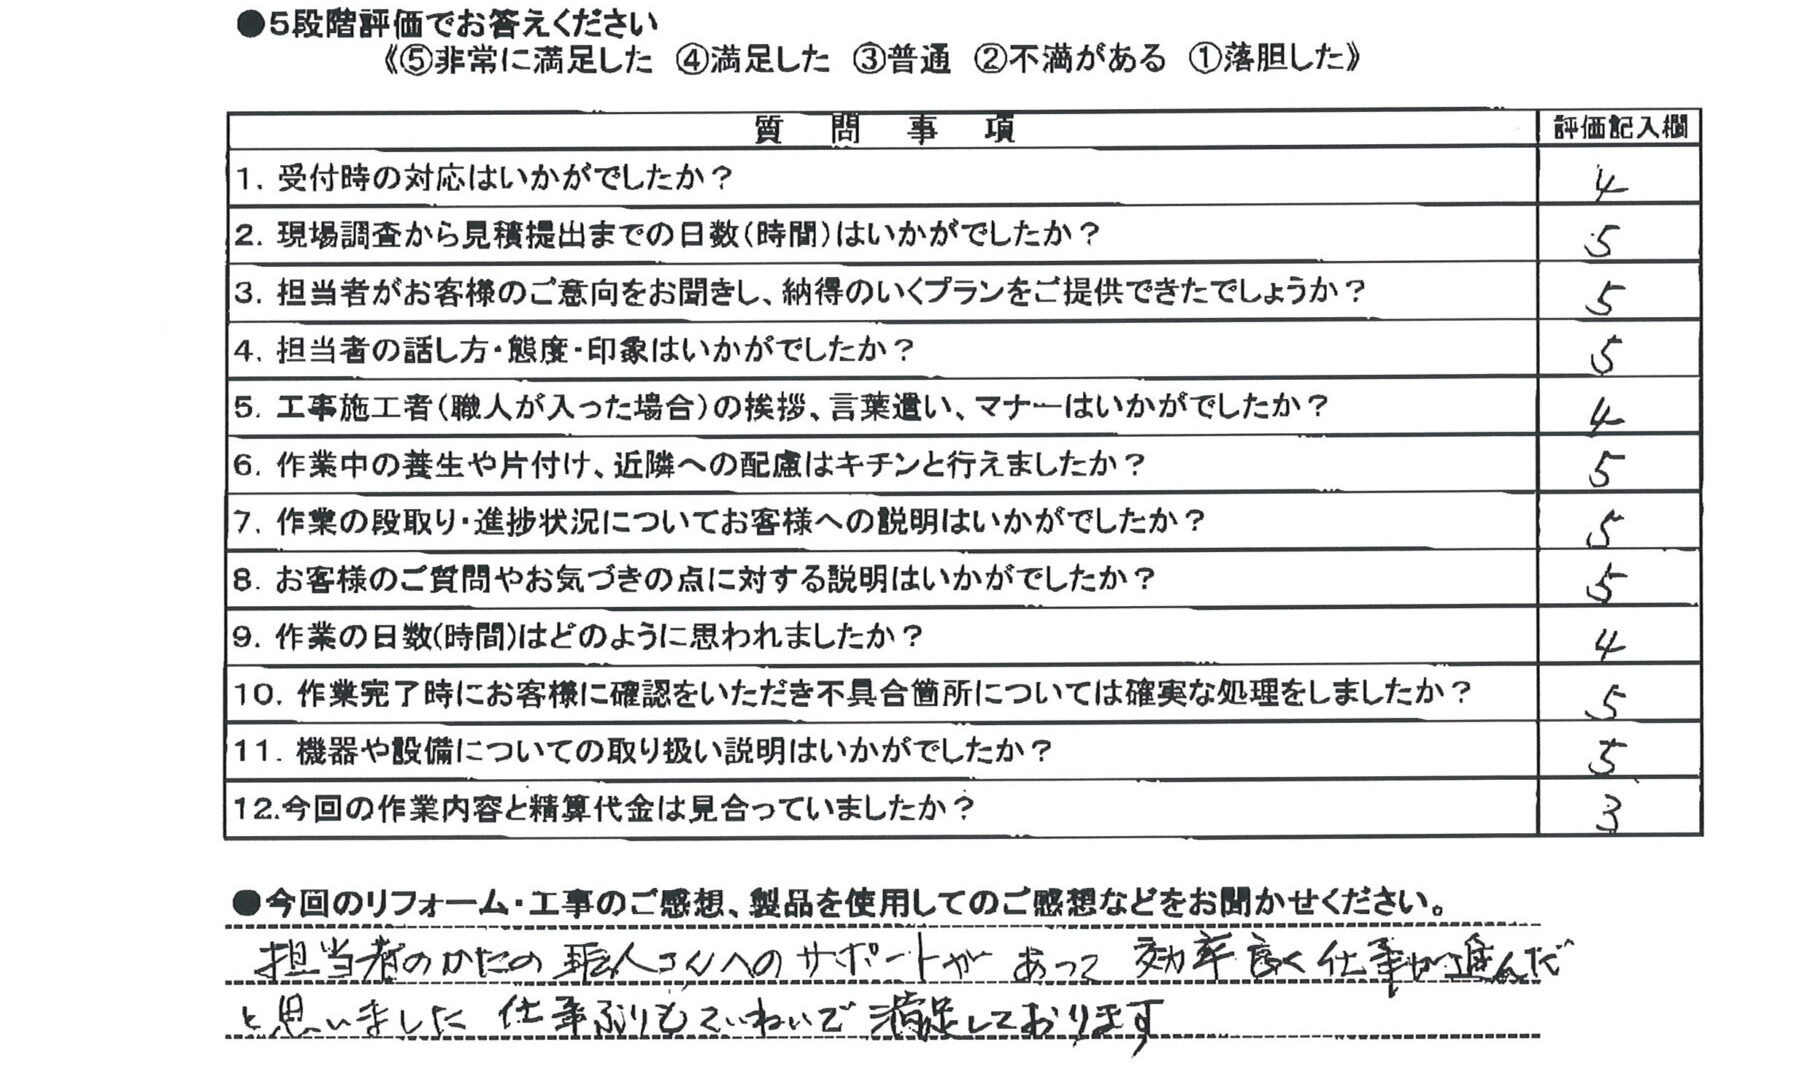 ●5段階評価でお答えください
《⑤非常に満足した ④満足した ③普通 ②不満がある ①落胆した》
質問事項 評価記入欄
1. 受付時の対応はいかがでしたか? 4
2. 現場調査から見積提出までの日数(時間)はいかがでしたか? 5
3. 担当者がお客様のご意向をお聞きし、納得のいくプランをご提供できたでしょうか? 5
4. 担当者の話し方・態度・印象はいかがでしたか? 5
5. 工事施工者(職人が入った場合)の挨拶、言葉遣い、マナーはいかがでしたか? 4
6. 作業中の養生や片付け、近隣への配慮はキチンと行えましたか? 5
7. 作業の段取り・進捗状況についてお客様への説明はいかがでしたか? 5
8. お客様のご質問やお気づきの点に対する説明はいかがでしたか? 5
9. 作業の日数(時間)はどのように思われましたか? 4
10. 作業完了時にお客様に確認をいただき不具合箇所については確実な処理をしましたか? 5
11. 機器や設備についての取り扱い説明はいかがでしたか? 5
12.今回の作業内容と精算代金は見合っていましたか? 3
●今回のリフォーム・工事のご感想、製品を使用してのご感想などをお聞かせください。
担当者のかたの職人さんへのサポートがあって 効率良く仕事が進んだ
と思いました 仕事ぶりもていねいで満足しております